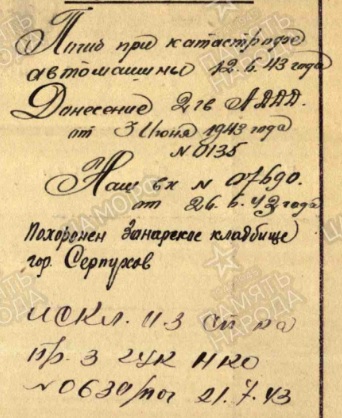 Погиб при катастрофе
автомашины 12.6.43 года
Донесение 2 гв АДДД.
от 3 Июня 1943 года
N 0135
Наш вх N 07690.
от 26.6.43 года
Похоронен Занарское кладбище
гор. Серпухов
искл. из сп‑ка
пр. 3 ГУК НКО
N 0639/пог 21.7.43
ПАМЯТЬ
НАРОДА